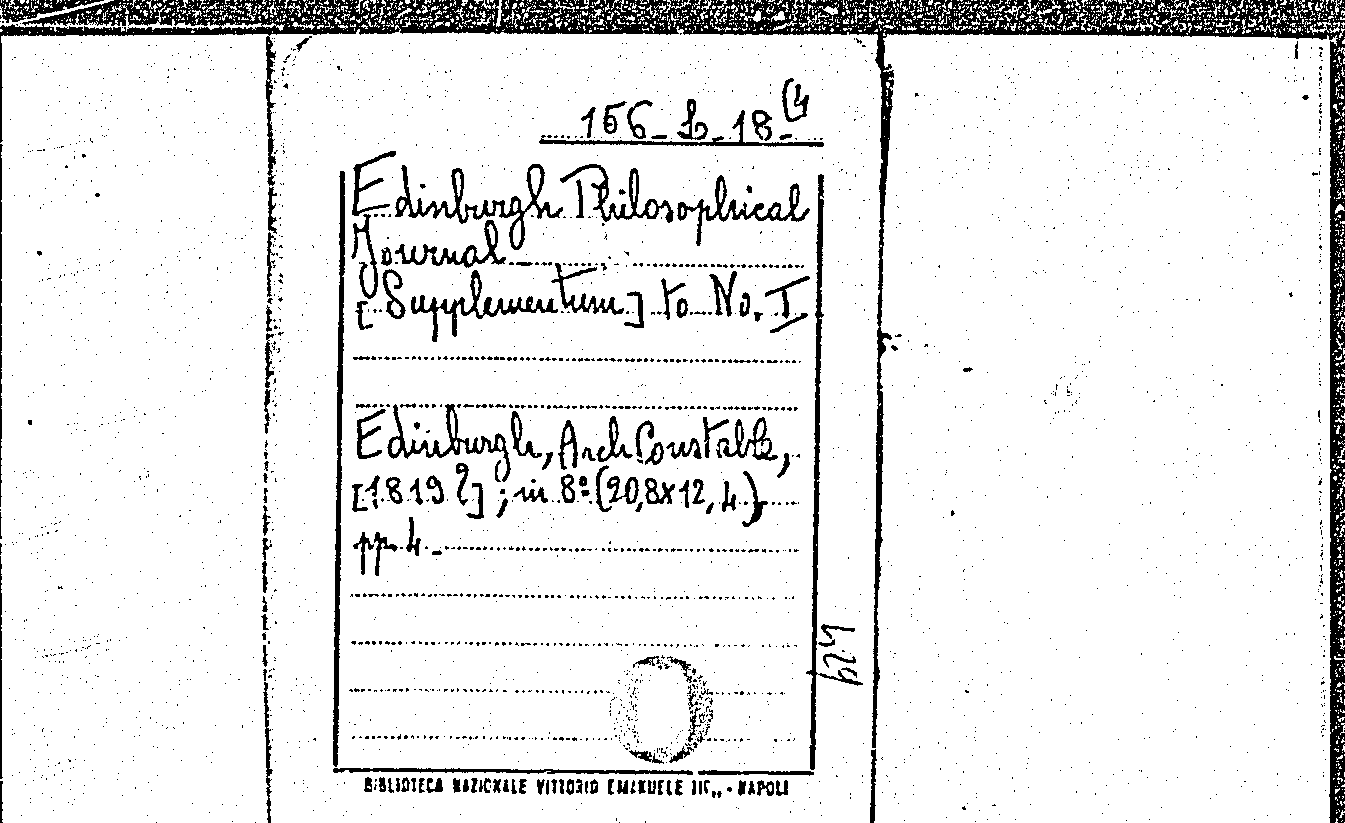 156-L-18(4
Edinburgh Philosophical
Journal_
[Supplementum] to No. I
Edinburgh, Arch Constable,
[1819?]; in 8º (20,8x12,4)
pp. 4_
BIBLIOTECA NAZIONALE VITTORIO EMANUELE III„ - NAPOLI